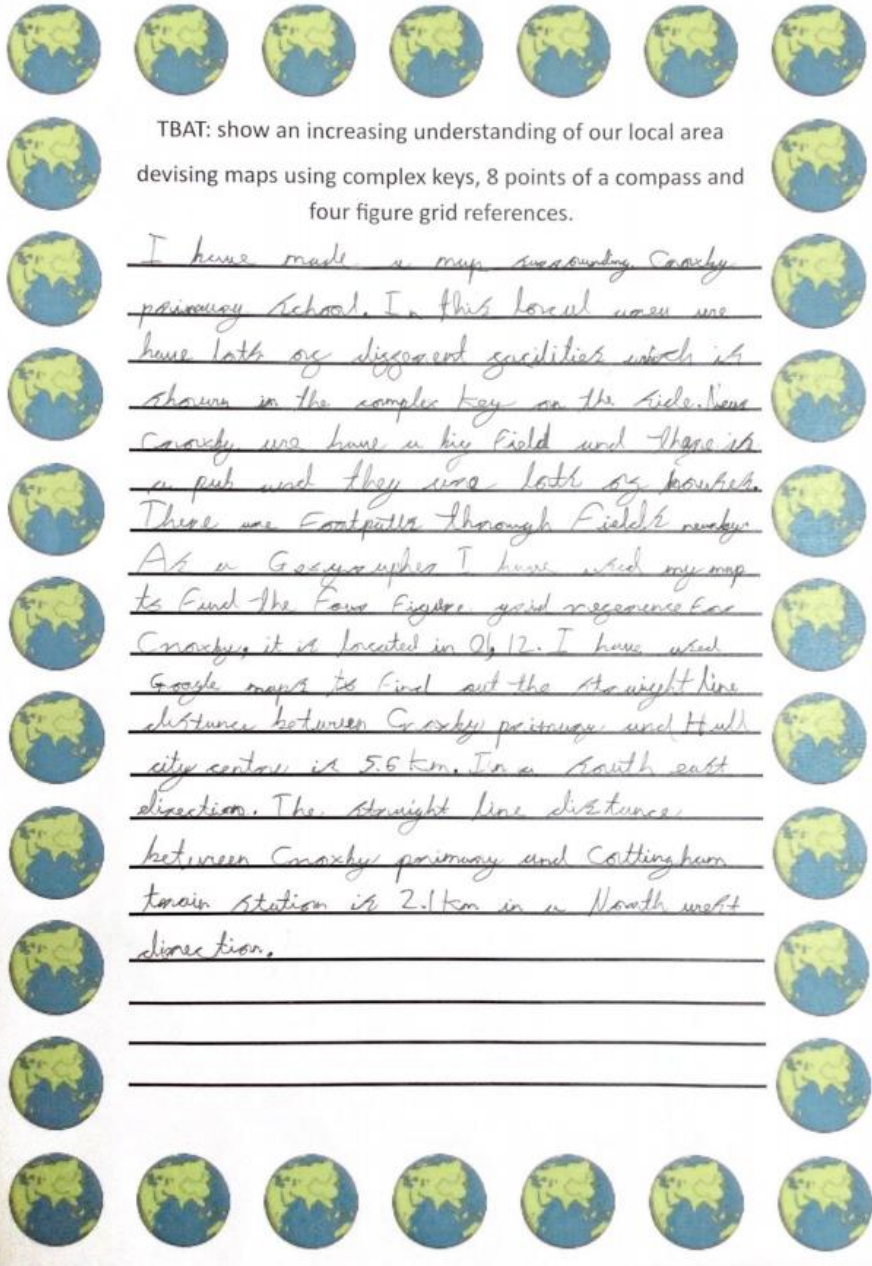 TBAT: show an increasing understanding of our local area
devising maps using complex keys, 8 points of a compass and
four figure grid references.
I have made a map surrounding Croxby
primary school. In this local area we
have lots of different facilities which is
shown in the complex key on the side. Near
Croxby we have a big Field and there is
a pub and they are lots of houses.
There are Footpaths through Fields nearby.
As a Geographer I have used my map
to Find the Four Figure grid reference For
Croxby, it is located in 06, 12. I have used
Google maps to Find out the straight line
distance between Croxby primary and Hull
city centre is 5.6 km. In a south east
direction. The straight line distance
between Croxby primary and Cottingham
train station is 2.1 km in a North west
direction.